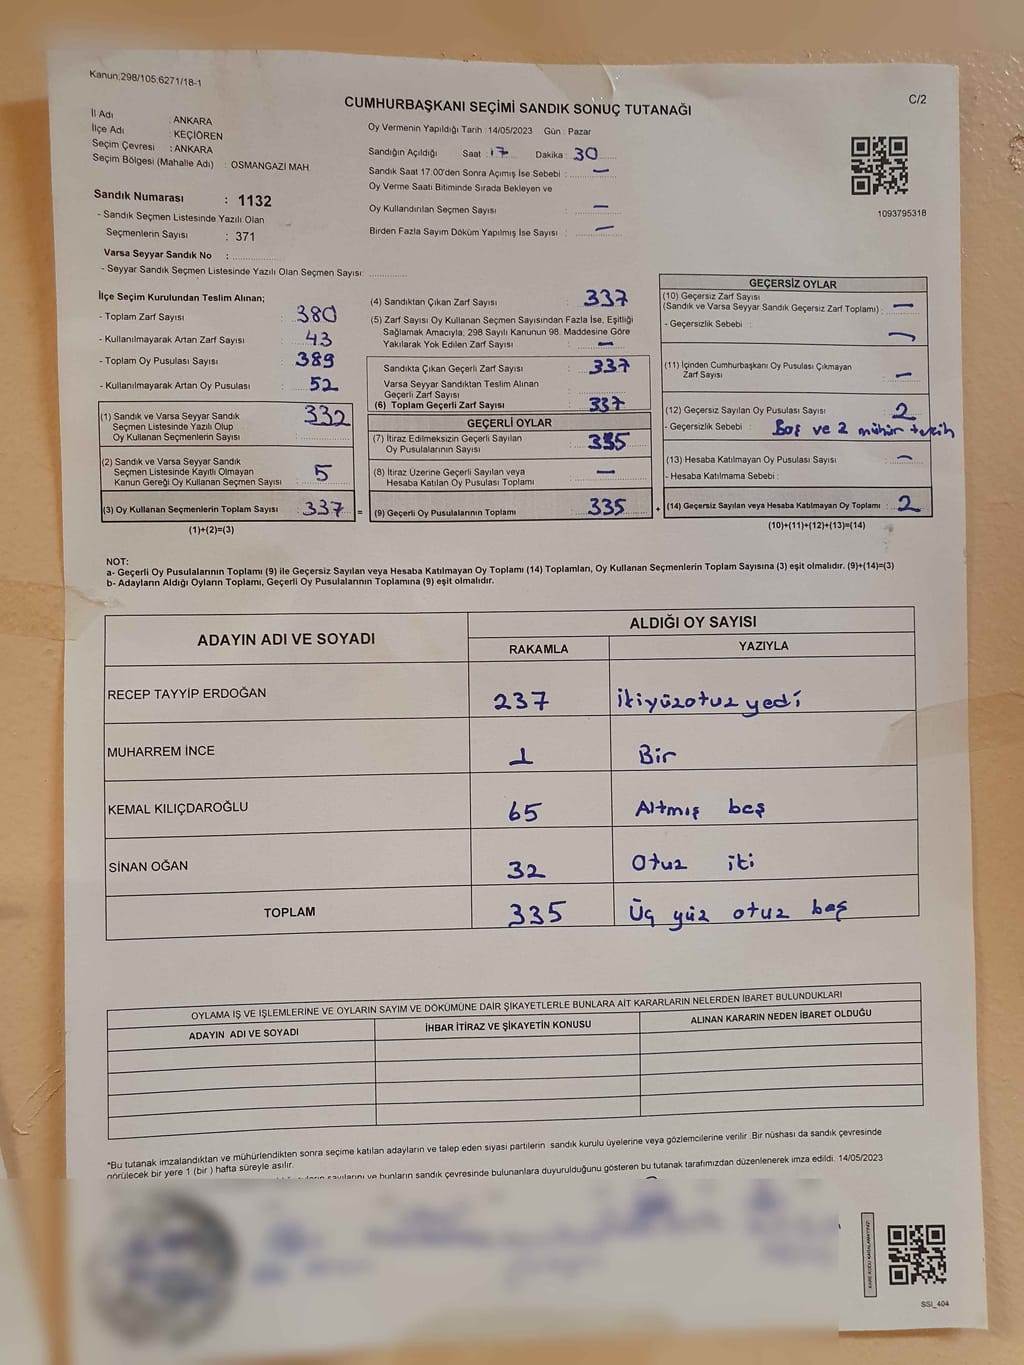 Kanun;298/105;6271/18-1
C/2
CUMHURBAŞKANI SEÇİMİ SANDIK SONUÇ TUTANAĞI
İl Adı : ANKARA
İlçe Adı : KEÇİÖREN
Seçim Çevresi : ANKARA
Seçim Bölgesi (Mahalle Adı) : OSMANGAZI MAH
Sandık Numarası : 1132
- Sandık Seçmen Listesinde Yazılı Olan
Seçmenlerin Sayısı : 371
Varsa Seyyar Sandık No :
- Seyyar Sandık Seçmen Listesinde Yazılı Olan Seçmen Sayısı:
Oy Vermenin Yapıldığı Tarih : 14/05/2023 Gün : Pazar
Sandığın Açıldığı Saat : 17 Dakika : 30
Sandık Saat 17:00'den Sonra Açımış İse Sebebi : —
Oy Verme Saati Bitiminde Sırada Bekleyen ve
Oy Kullandırılan Seçmen Sayısı : —
Birden Fazla Sayım Döküm Yapılmış İse Sayısı : —
1093795318
İlçe Seçim Kurulundan Teslim Alınan;
- Toplam Zarf Sayısı : 380
- Kullanılmayarak Artan Zarf Sayısı : 43
- Toplam Oy Pusulası Sayısı : 389
- Kullanılmayarak Artan Oy Pusulası : 52
(1) Sandık ve Varsa Seyyar Sandık
Seçmen Listesinde Yazılı Olup
Oy Kullanan Seçmenlerin Sayısı : 332
(2) Sandık ve Varsa Seyyar Sandık
Seçmen Listesinde Kayıtlı Olmayan
Kanun Gereği Oy Kullanan Seçmen Sayısı : 5
(3) Oy Kullanan Seçmenlerin Toplam Sayısı : 337 =
(1)+(2)=(3)
(4) Sandıktan Çıkan Zarf Sayısı : 337
(5) Zarf Sayısı Oy Kullanan Seçmen Sayısından Fazla İse, Eşitliği
Sağlamak Amacıyla, 298 Sayılı Kanunun 98. Maddesine Göre
Yakılarak Yok Edilen Zarf Sayısı : —
Sandıkta Çıkan Geçerli Zarf Sayısı : 337
Varsa Seyyar Sandıktan Teslim Alınan
Geçerli Zarf Sayısı :
(6) Toplam Geçerli Zarf Sayısı : 337
GEÇERLİ OYLAR
(7) İtiraz Edilmeksizin Geçerli Sayılan
Oy Pusulalarının Sayısı : 335
(8) İtiraz Üzerine Geçerli Sayılan veya
Hesaba Katılan Oy Pusulası Toplamı : —
(9) Geçerli Oy Pusulalarının Toplamı : 335 +
GEÇERSİZ OYLAR
(10) Geçersiz Zarf Sayısı
(Sandık ve Varsa Seyyar Sandık Geçersiz Zarf Toplamı) : —
- Geçersizlik Sebebi : —
(11) İçinden Cumhurbaşkanı Oy Pusulası Çıkmayan
Zarf Sayısı : —
(12) Geçersiz Sayılan Oy Pusulası Sayısı : 2
- Geçersizlik Sebebi : Boş ve 2 mühür tercih
(13) Hesaba Katılmayan Oy Pusulası Sayısı : —
- Hesaba Katılmama Sebebi :
(14) Geçersiz Sayılan veya Hesaba Katılmayan Oy Toplamı : 2
(10)+(11)+(12)+(13)=(14)
NOT:
a- Geçerli Oy Pusulalarının Toplamı (9) ile Geçersiz Sayılan veya Hesaba Katılmayan Oy Toplamı (14) Toplamları, Oy Kullanan Seçmenlerin Toplam Sayısına (3) eşit olmalıdır. (9)+(14)=(3)
b- Adayların Aldığı Oyların Toplamı, Geçerli Oy Pusulalarının Toplamına (9) eşit olmalıdır.
ADAYIN ADI VE SOYADI ALDIĞI OY SAYISI
RAKAMLA YAZIYLA
RECEP TAYYİP ERDOĞAN 237 İkiyüzotuz yedi
MUHARREM İNCE 1 Bir
KEMAL KILIÇDAROĞLU 65 Altmış beş
SİNAN OĞAN 32 Otuz iki
TOPLAM 335 Üç yüz otuz beş
OYLAMA İŞ VE İŞLEMLERİNE VE OYLARIN SAYIM VE DÖKÜMÜNE DAİR ŞİKAYETLERLE BUNLARA AİT KARARLARIN NELERDEN İBARET BULUNDUKLARI
ADAYIN ADI VE SOYADI İHBAR İTİRAZ VE ŞİKAYETİN KONUSU ALINAN KARARIN NEDEN İBARET OLDUĞU
*Bu tutanak imzalandıktan ve mühürlendikten sonra seçime katılan adayların ve talep eden siyasi partilerin sandık kurulu üyelerine veya gözlemcilerine verilir .Bir nüshası da sandık çevresinde
görülecek bir yere 1 (bir ) hafta süreyle asılır.
sayılarını ve bunların sandık çevresinde bulunanlara duyurulduğunu gösteren bu tutanak tarafımızdan düzenlenerek imza edildi. 14/05/2023
SSI_404